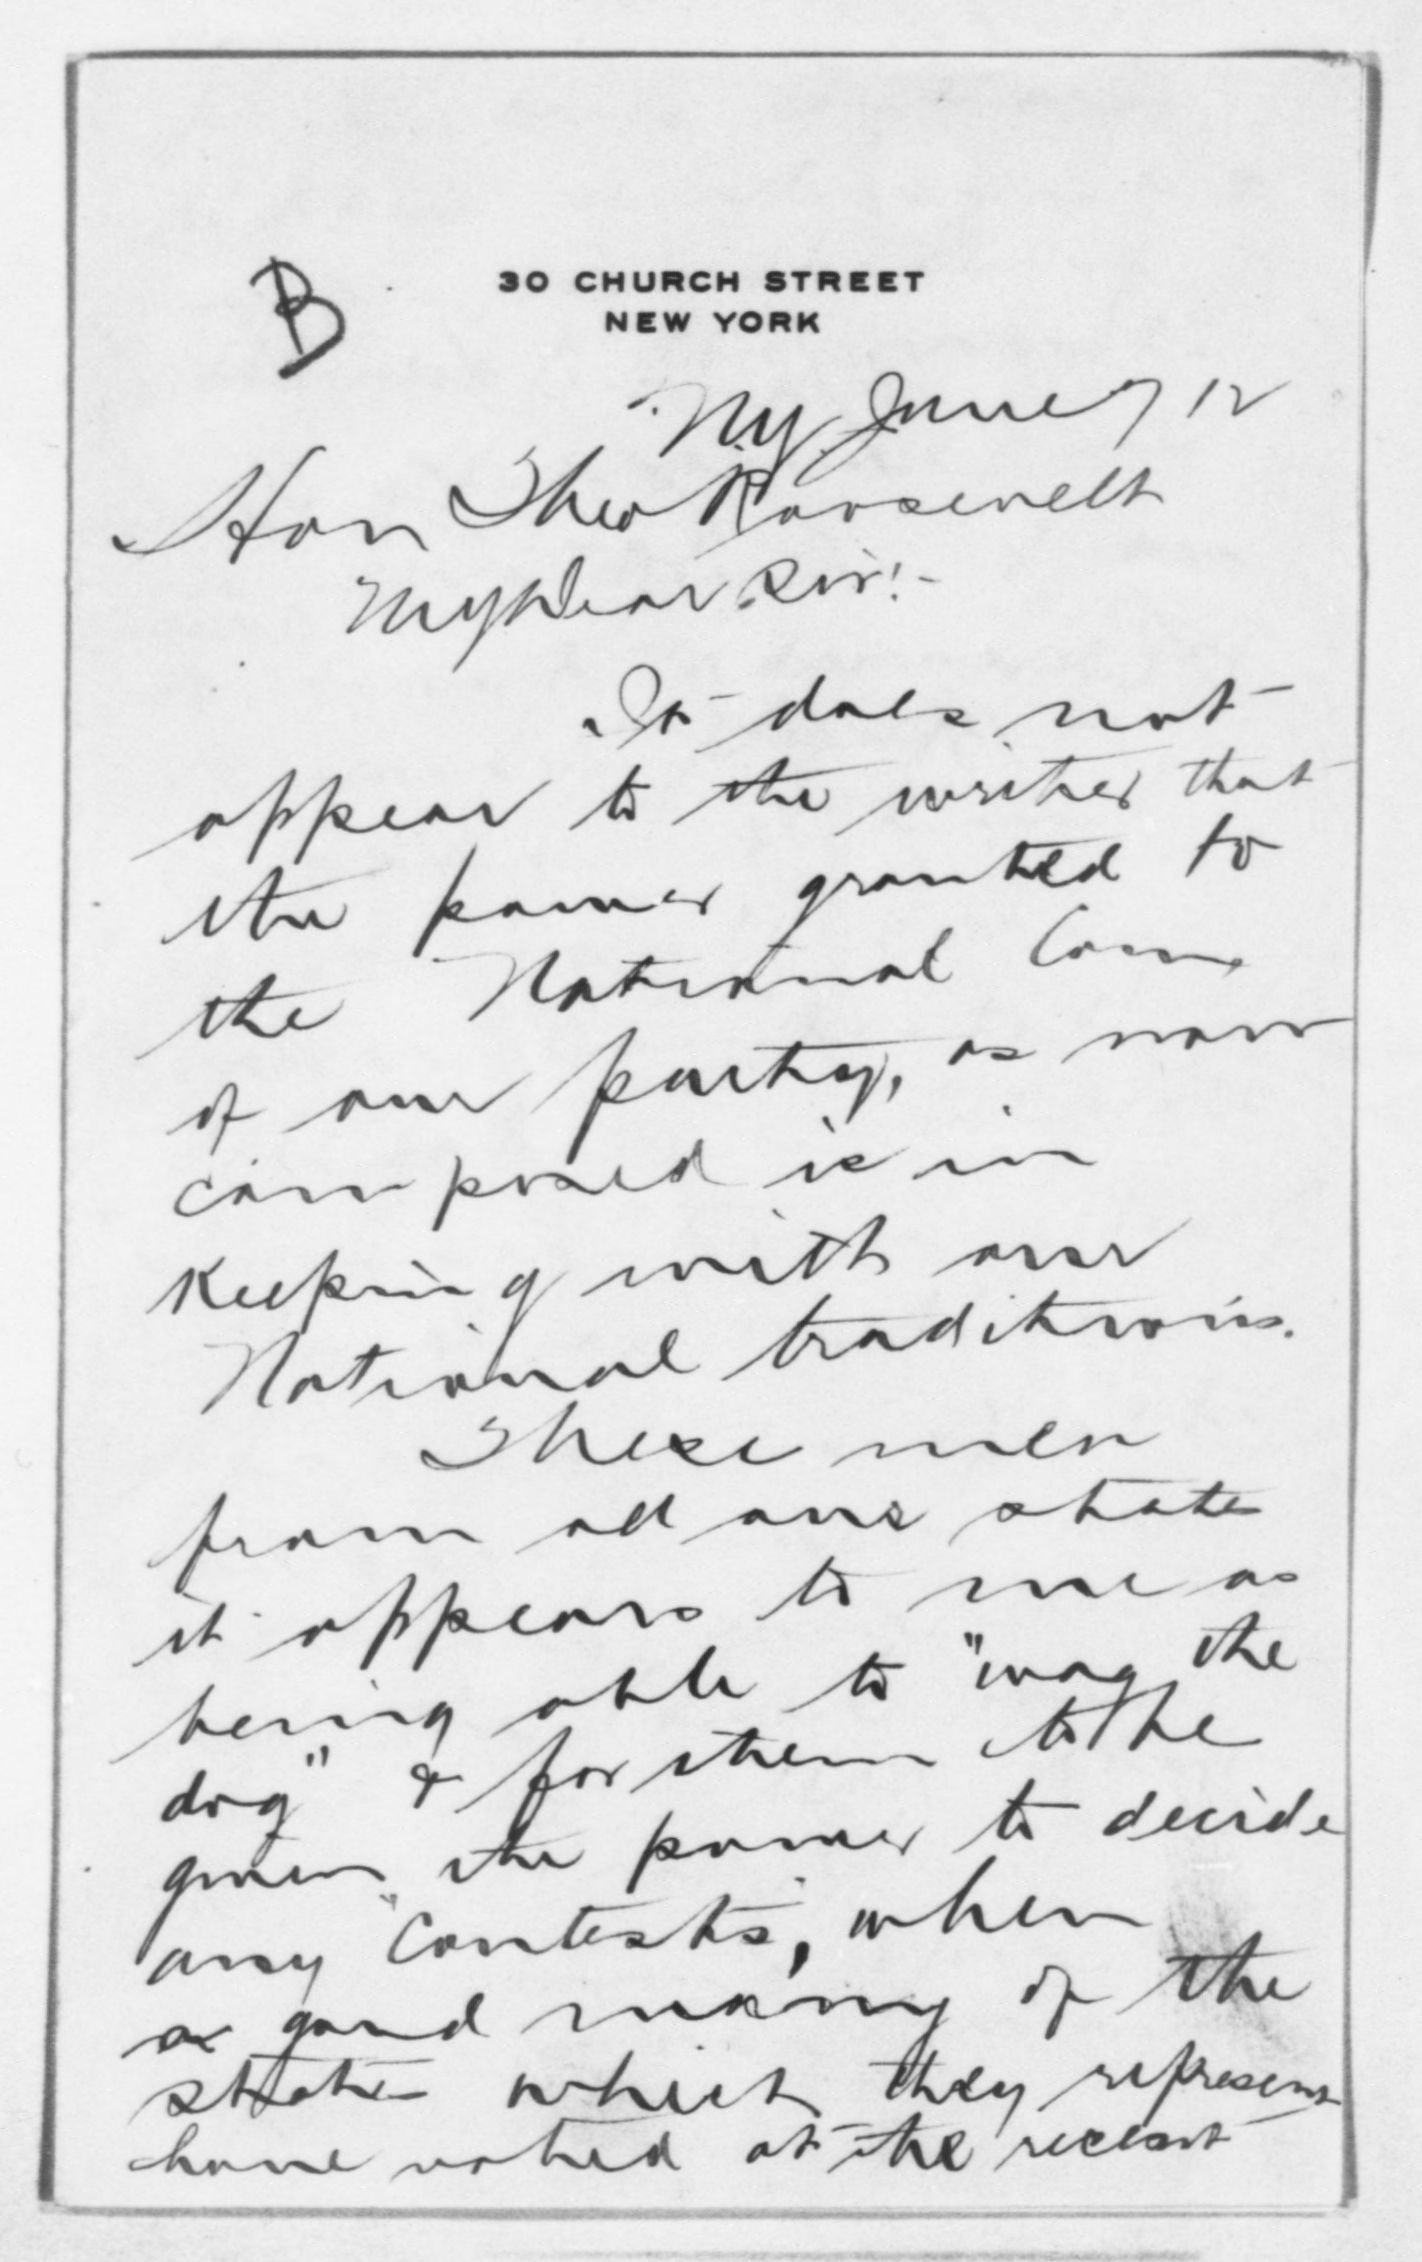 B
30 CHURCH STREET
NEW YORK
NY. June 7 12
Hon Theo Roosevelt
My Dear Sir!-
It does not
appear to the writer that
the power granted to
the National Com
of our party, as now
composed is in
keeping with our
National traditions.
These men
from all our states
it appears to me as
being able to "wag the
dog" & for them to be
given the power to decide
any "Contests", when
a good many of the
states which they represent
have voted at the recent